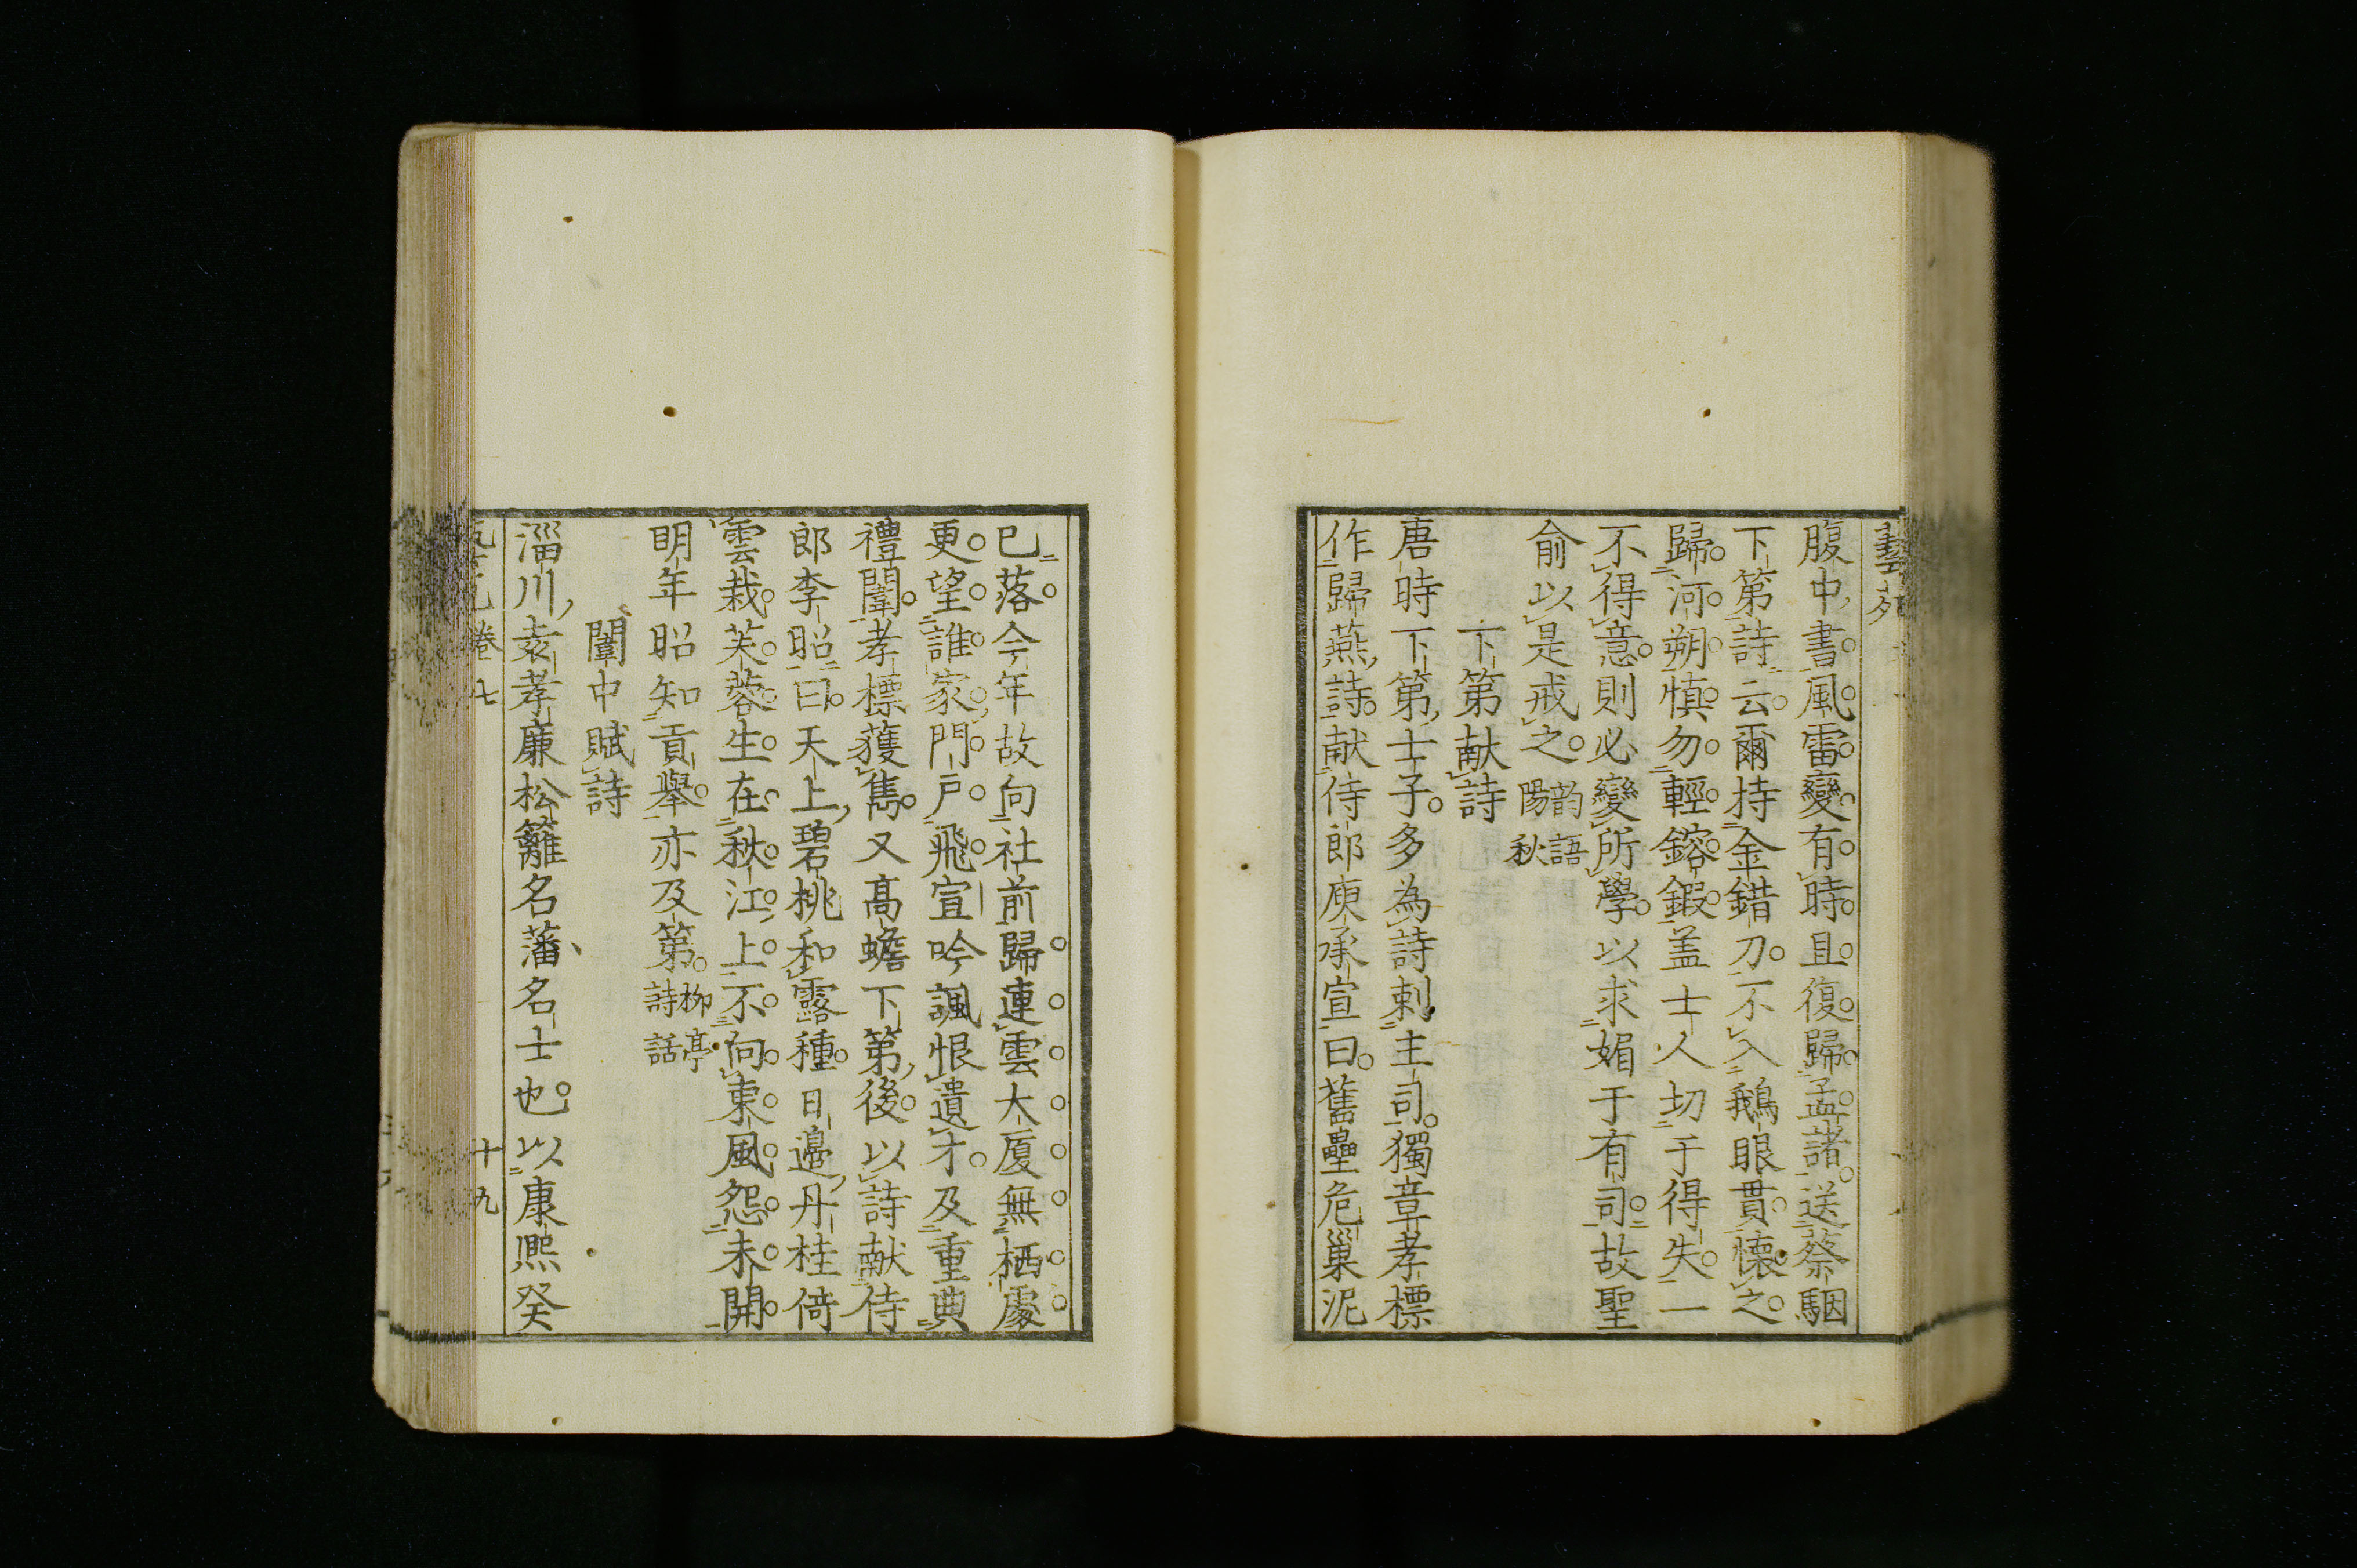 藝苑
腹中書風雷變有時且復歸孟諸送蔡駰
下第詩云爾持金錯刀不入鵝眼貫懐之
歸河朔慎勿輕鎔鍜盖士人切于得失一
不得意則必變所學以求媚于有司故聖
俞以是戒之韵語
陽秋
下第献詩
唐時下第士子多為詩刺主司獨章孝標
作歸燕詩献侍郎庾承宣曰舊壘危巢泥
已落今年故向社前歸連雲大厦無栖處
更望誰家門戸飛宣吟諷恨遺才及重典
禮闈孝標獲雋又高蟾下第後以詩献侍
郎李昭曰天上碧桃和露種日邉丹桂倚
雲栽芙蓉生在秋江上不向東風怨未開
明年昭知貢舉亦及第柳亭
詩話
闈中賦詩
淄川袁孝廉松籬名藩名士也以康熙癸
卷七 十九